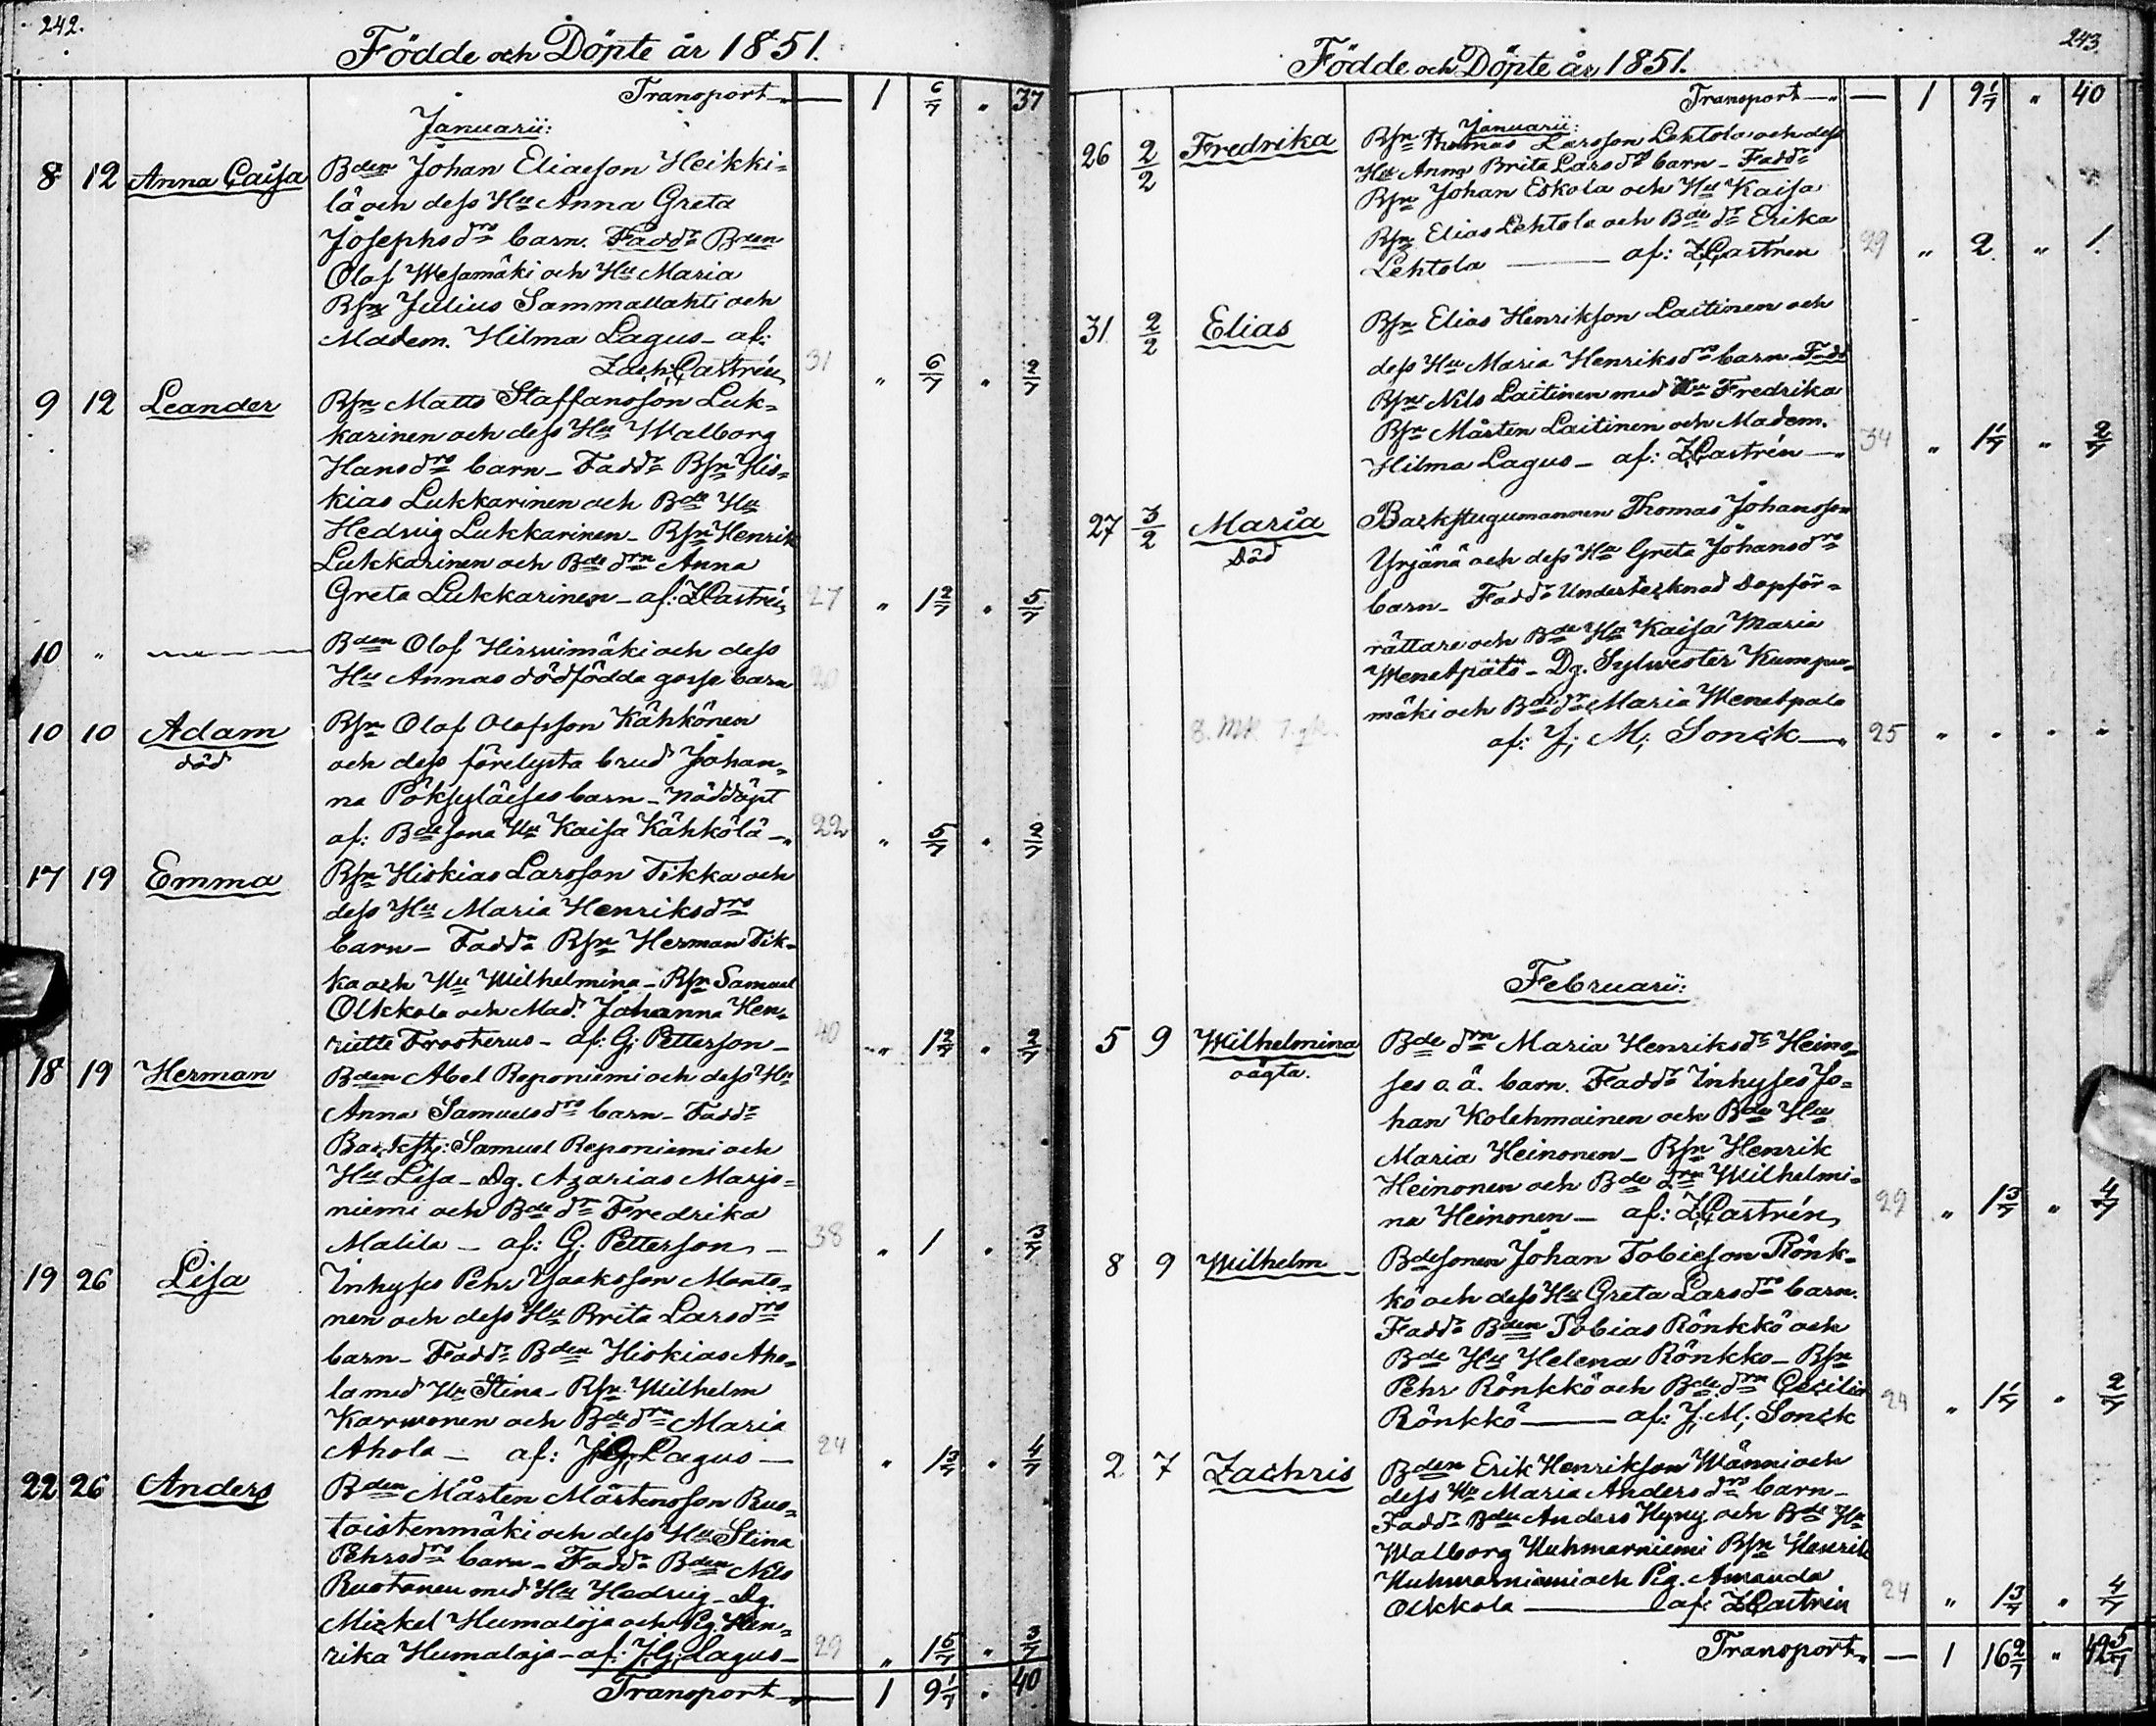 242.
Födde och Döpte år 1851.
Transport — 1 6/7 " 37
Januarii:
8 12 Anna Caisa Bden Johan Eliasson Heikki-
lä och dess Hu Anna Greta
Josephsdrs barn. Faddr Bden
Olof Wesamäki och Hu Maria
Bsn Julius Sammallahti och
Madem. Hilma Lagus - af:
Zach: Castrén 31 " 6/7 " 2/7
9 12 Leander Bsn Matts Staffansson Luk-
karinen och dess Hu Walborg
Hansdrs barn - Faddr Bsn His-
kias Lukkarinen och Bde Hu
Hedvig Lukkarinen - Bsn Henrik
Lukkarinen och Bde drn Anna
Greta Lukkarinen - af: Z Castrén 27 " 1 2/7 " 5/7
10 " — Bden Olof Hirvimäki och dess
Hu Annas dödfödda gosse barn 20
10 10 Adam Bsn Olof Olofsson Kähkönen
död och dess förelysta brud Johan-
na Pöksyläises barn - Nöddöpt
af: Bdesona Hu Kaisa Kähkölä - 22 " 5/7 "
17 19 Emma Bsn Hiskias Larsson Tikka och
dess Hu Maria Henriksdrs
barn - Faddr Bsn Herman Tik-
ka och Hu Wilhelmina - Bsn Samuel
Olkkola och Mad: Johanna Hen-
riette Frosterus - af: G: Petterson - 40 " 1 2/7 " 2/7
18 19 Herman Bden Abel Reponiemi och dess Hu
Anna Samuelsdrs barn - Faddr
Backst: Samuel Reponiemi och
Hu Lisa - Dg. Azarias Marjo-
niemi och Bde dr Fredrika
Malila - af: G: Petterson - 38 " 1 " 3/7
19 26 Lisa Inhyses Pehr Isaksson Monto-
nen och dess Hu Brita Larsdrs
barn - Faddr Bden Hiskias Aho-
la med Hu Stina - Bsn Wilhelm
Karvonen och Bde drn Maria
Ahola - af: J G Lagus - 24 " 1 3/7 " 4/7
22 26 Anders Bden Mårten Mårtensson Ruo-
toistenmäki och dess Hu Stina
Pehrsdrs barn - Faddr Bden Nils
Ruotanen med Hu Hedvig - Dg.
Mickel Humaloja och Pig. Hen-
rika Humaloja - af: J: G: Lagus - 29 " 1 5/7 " 3/7
Transport — 1 9 1/7 " 40
243.
Födde och Döpte år 1851.
Transport — 1 9 1/7 " 40
Januarii:
26 2/2 Fredrika Bsn Thomas Larsson Lehtola och dess
Hu Anna Brita Larsdrs barn - Faddr
Bsn Johan Eskola och Hu Kaisa
Bsn Elias Lehtola och Bde dr Erika
Lehtola — af: Z Castren 29 " 2 " 1.
31 2/2 Elias Bsn Elias Henriksson Laitinen och
dess Hu Maria Henriksdrs barn - Fadd
Bsn Nils Laitinen med Hu Fredrika
Bsn Mårten Laitinen och Madem.
Hilma Lagus - af: Z Castrén - 34 " 1 1/7 " 2/7
27 3/2 Maria Backstugumannen Thomas Johansson
Död Yrjänä och dess Hu Greta Johansdrs
barn - Faddr Undertecknad dopför-
rättare och Bde Hu Kaisa Maria
Wenetpalo - Dg. Sylvester Kumpu-
mäki och Bde dr Maria Wenetpalo
af: J; M; Sonck — 25 " " " "
Februarii:
5 9 Wilhelmina Bde drn Maria Henriksdr Heino-
oägta. ses o. ä. barn. Faddr Inhyses Jo-
han Kolehmainen och Bde Hu
Maria Heinonen - Bsn Henrik
Heinonen och Bde drn Wilhelmi-
na Heinonen - af: Z Castrén 29 " 1 3/7 " 4/7
8 9 Wilhelm Bdesonen Johan Tobiesson Rönk-
kö och dess Hu Greta Larsdrs barn.
Faddr Bden Tobias Rönkkö och
Bde Hu Helena Rönkkö - Bsn
Pehr Rönkkö och Bde drn Cecilia
Rönkkö — af: J. M; Sonck 24 " 1 1/7 " 2/7
2 7 Zachris Bden Erik Henriksson Wänni och
dess Hu Maria Andersdrs barn -
Faddr Bden Anders Hyny och Bde Hu
Walborg Huhmarniemi Bsn Henrik
Huhmarniemi och Pig. Amanda
Olkkola — af: Z Castrén 24 " 1 3/7 " 4/7
Transport — 1 16 2/7 " 42 5/7